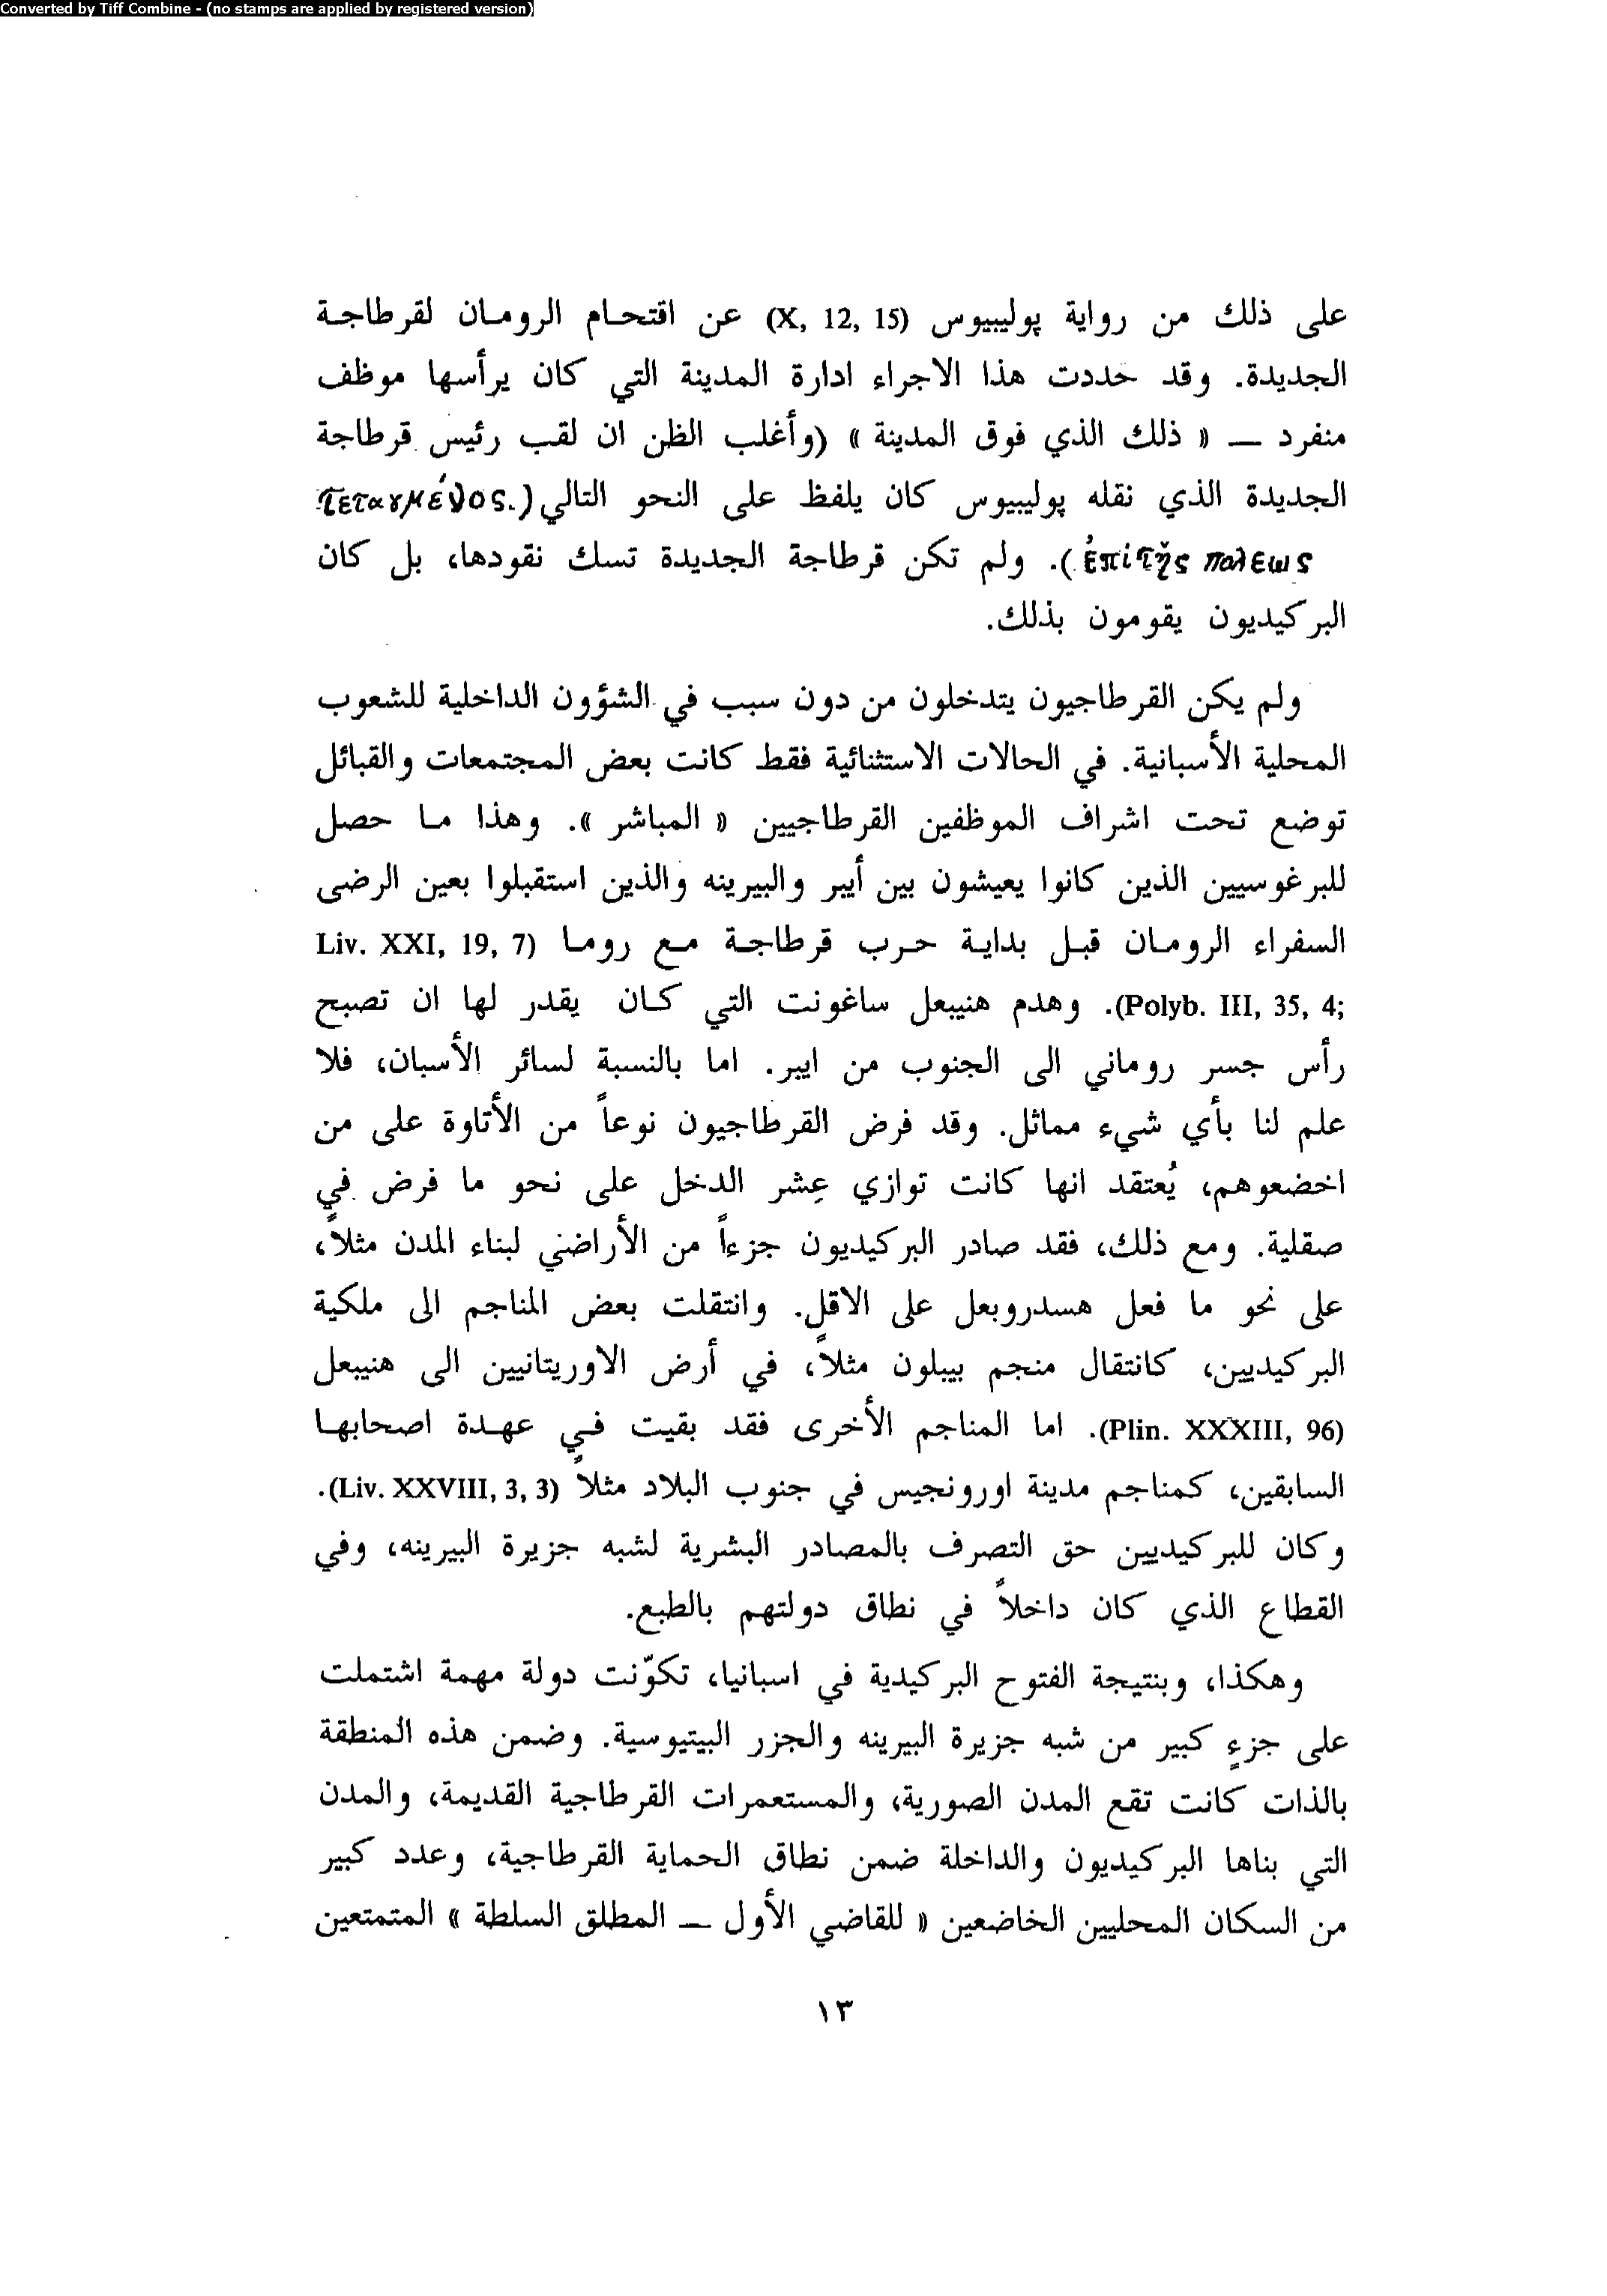 Converted by Tiff Combine - (no stamps are applied by registered version)
على ذلك من رواية پوليبيوس (X, 12, 15) عن اقتحام الرومان لقرطاجة
الجديدة. وقد حددت هذا الاجراء ادارة المدينة التي كان يرأسها موظف
منفرد — « ذلك الذي فوق المدينة » (وأغلب الظن ان لقب رئيس قرطاجة
الجديدة الذي نقله پوليبيوس كان يلفظ على النحو التالي (.τεταγμένος
ἐπί τῆς πολεως). ولم تكن قرطاجة الجديدة تسك نقودها، بل كان
البركيديون يقومون بذلك.
ولم يكن القرطاجيون يتدخلون من دون سبب في الشؤون الداخلية للشعوب
المحلية الأسبانية. في الحالات الاستثنائية فقط كانت بعض المجتمعات والقبائل
توضع تحت اشراف الموظفين القرطاجيين « المباشر ». وهذا ما حصل
للبرغوسيين الذين كانوا يعيشون بين أيبر والبيرينه والذين استقبلوا بعين الرضى
السفراء الرومان قبل بداية حرب قرطاجة مع روما (Liv. XXI, 19, 7
;Polyb. III, 35, 4). وهدم هنيبعل ساغونت التي كان يقدر لها ان تصبح
رأس جسر روماني الى الجنوب من ايبر. اما بالنسبة لسائر الأسبان، فلا
علم لنا بأي شيء مماثل. وقد فرض القرطاجيون نوعاً من الأتاوة على من
اخضعوهم، يُعتقد انها كانت توازي عِشر الدخل على نحو ما فرض في
صقلية. ومع ذلك، فقد صادر البركيديون جزءاً من الأراضي لبناء المدن مثلاً،
على نحو ما فعل هسدروبعل على الاقل. وانتقلت بعض المناجم الى ملكية
البركيديين، كانتقال منجم بيبلون مثلاً، في أرض الاوريتانيين الى هنيبعل
(Plin. XXXIII, 96). اما المناجم الأخرى فقد بقيت في عهدة اصحابها
السابقين، كمناجم مدينة اورونجيس في جنوب البلاد مثلاً (Liv. XXVIII, 3, 3).
وكان للبركيديين حق التصرف بالمصادر البشرية لشبه جزيرة البيرينه، وفي
القطاع الذي كان داخلاً في نطاق دولتهم بالطبع.
وهكذا، وبنتيجة الفتوح البركيدية في اسبانيا، تكوّنت دولة مهمة اشتملت
على جزءٍ كبير من شبه جزيرة البيرينه والجزر البيتيوسية. وضمن هذه المنطقة
بالذات كانت تقع المدن الصورية، والمستعمرات القرطاجية القديمة، والمدن
التي بناها البركيديون والداخلة ضمن نطاق الحماية القرطاجية، وعدد كبير
من السكان المحليين الخاضعين « للقاضي الأول — المطلق السلطة » المتمتعين
١٣